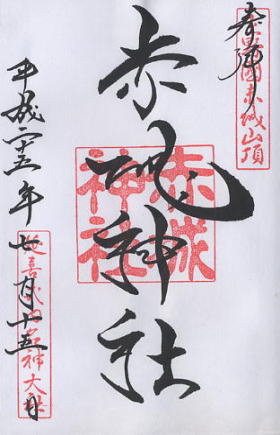 奉拝
上野國赤城山頂
赤城神社
赤城
神社
平成二十五年七月十五日
延喜式内名神大社